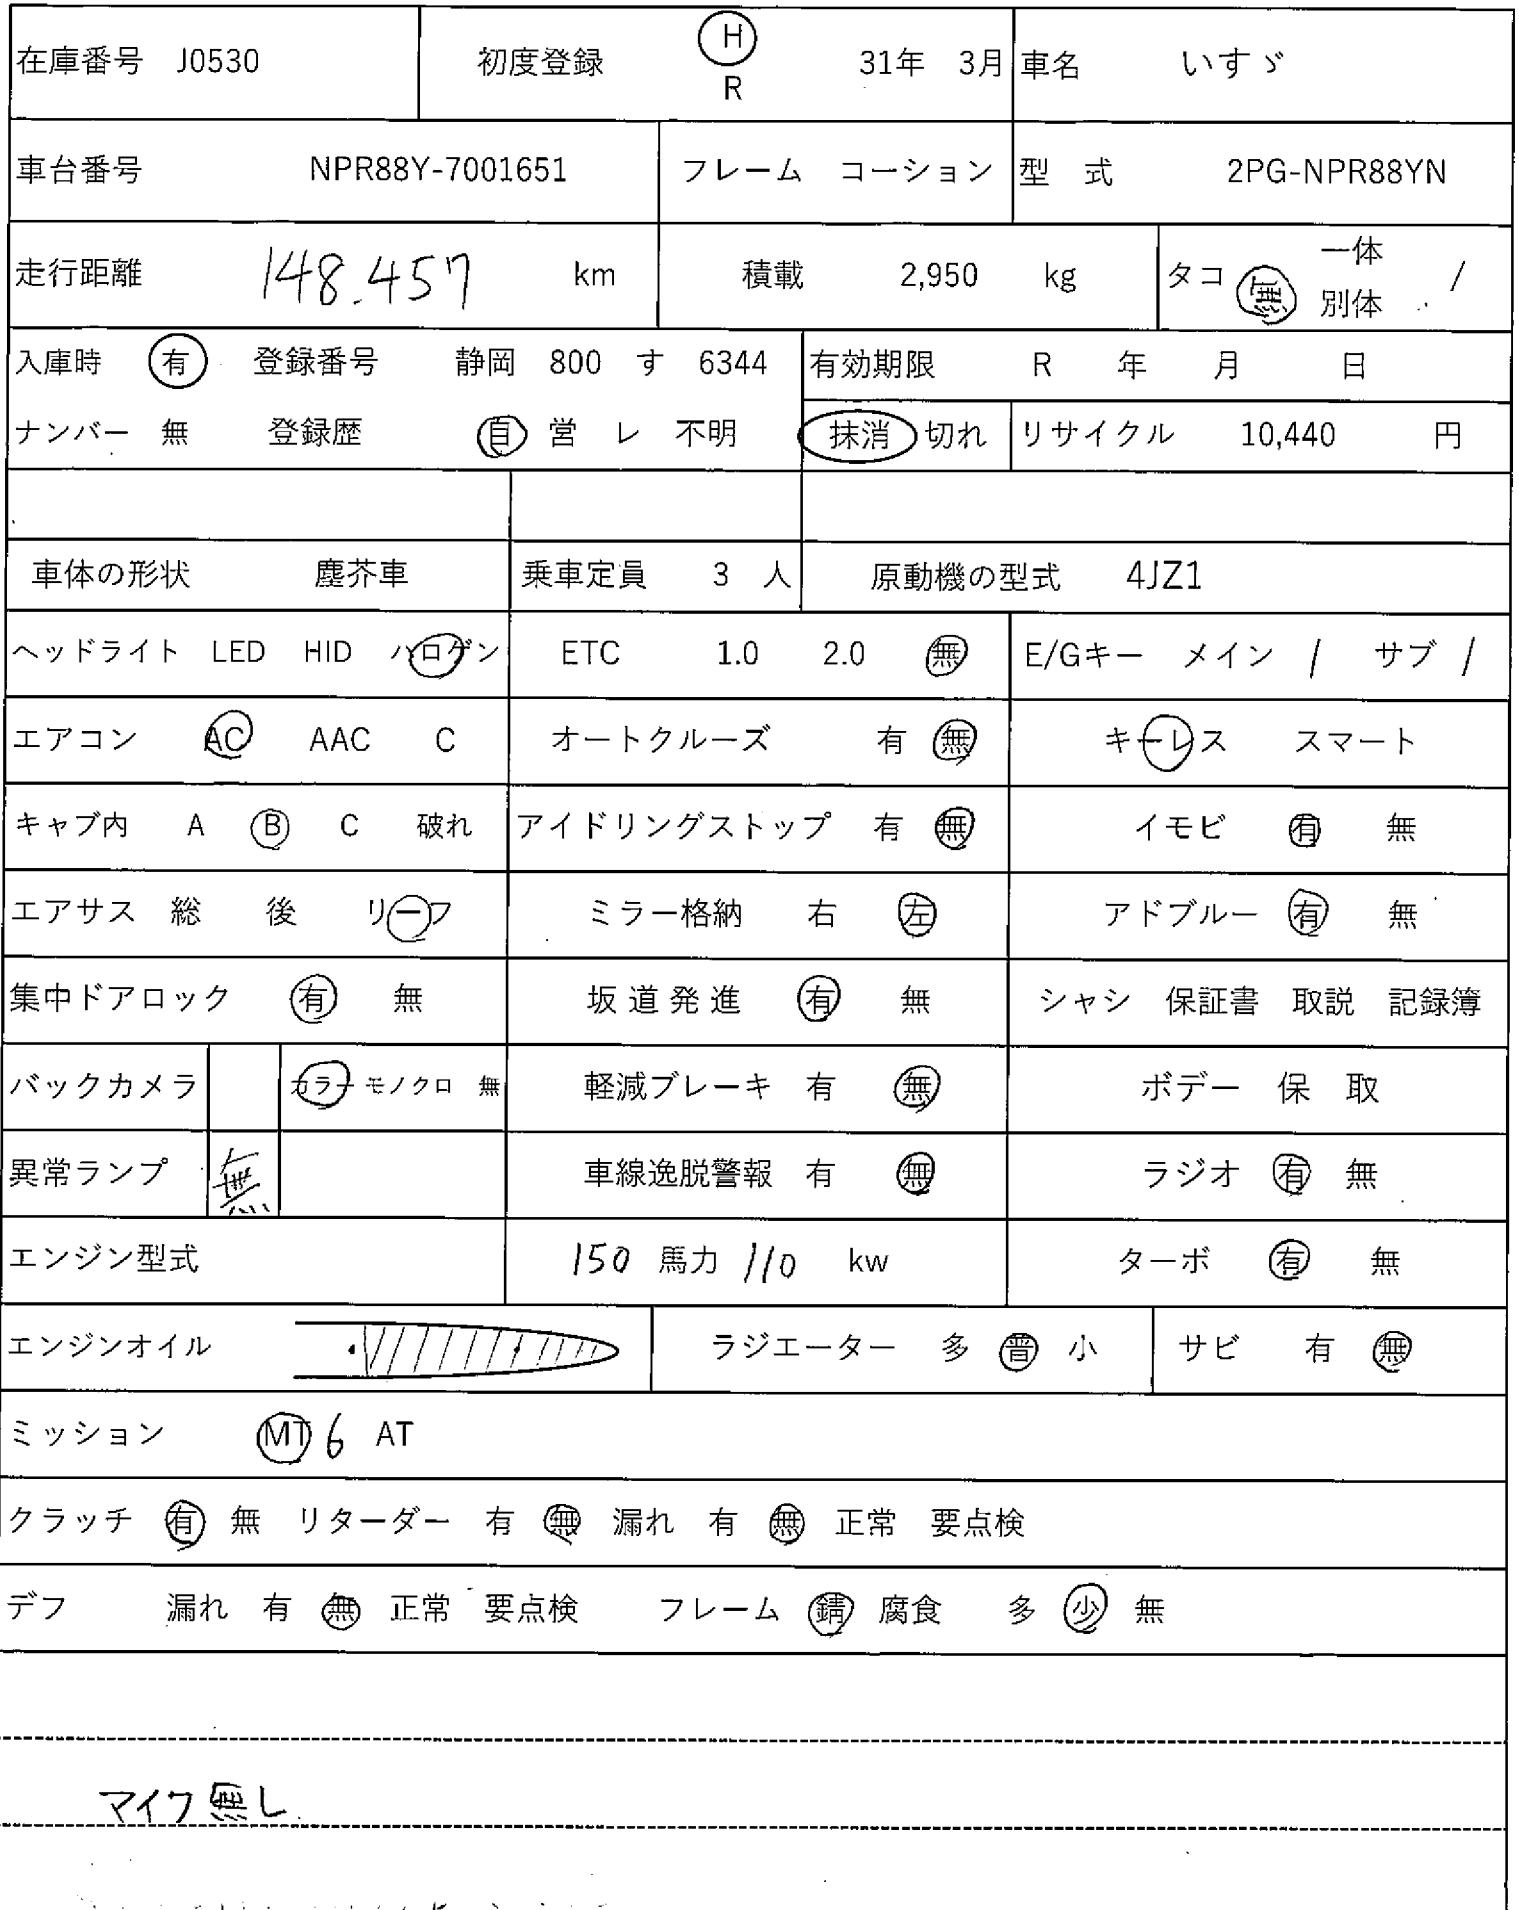 在庫番号 J0530 初度登録 H R 31年 3月 車名 いすゞ
車台番号 NPR88Y-7001651 フレーム コーション 型 式 2PG-NPR88YN
走行距離 148.457 km 積載 2,950 kg タコ 無 一体 別体 /
入庫時 有 登録番号 静岡 800 す 6344 有効期限 R 年 月 日
ナンバー 無 登録歴 自 営 レ 不明 抹消 切れ リサイクル 10,440 円
車体の形状 塵芥車 乗車定員 3 人 原動機の型式 4JZ1
ヘッドライト LED HID ハロゲン ETC 1.0 2.0 無 E/Gキー メイン / サブ /
エアコン AC AAC C オートクルーズ 有 無 キーレス スマート
キャブ内 A B C 破れ アイドリングストップ 有 無 イモビ 有 無
エアサス 総 後 リーフ ミラー格納 右 左 アドブルー 有 無
集中ドアロック 有 無 坂道発進 有 無 シャシ 保証書 取説 記録簿
バックカメラ カラー モノクロ 無 軽減ブレーキ 有 無 ボデー 保 取
異常ランプ 無 車線逸脱警報 有 無 ラジオ 有 無
エンジン型式 150 馬力 110 kw ターボ 有 無
エンジンオイル ラジエーター 多 普 小 サビ 有 無
ミッション MT 6 AT
クラッチ 有 無 リターダー 有 無 漏れ 有 無 正常 要点検
デフ 漏れ 有 無 正常 要点検 フレーム 錆 腐食 多 少 無
マイク無し